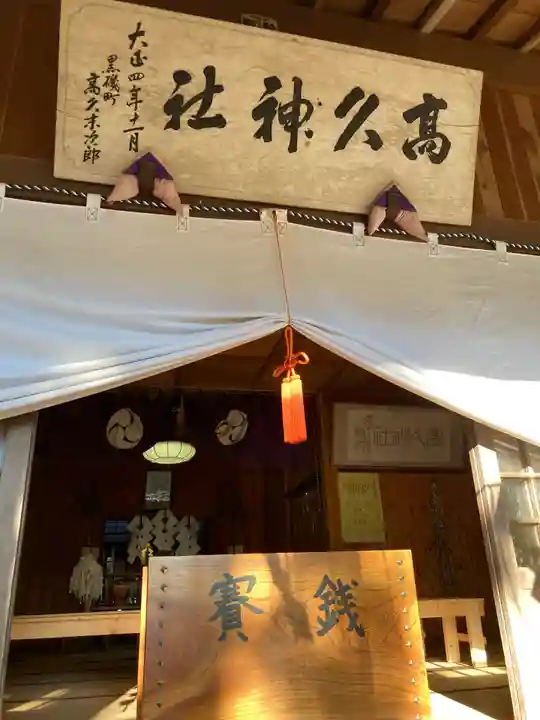 高久神社
大正四年十一月
黒磯町
高久末次郎
高久神社
賽銭